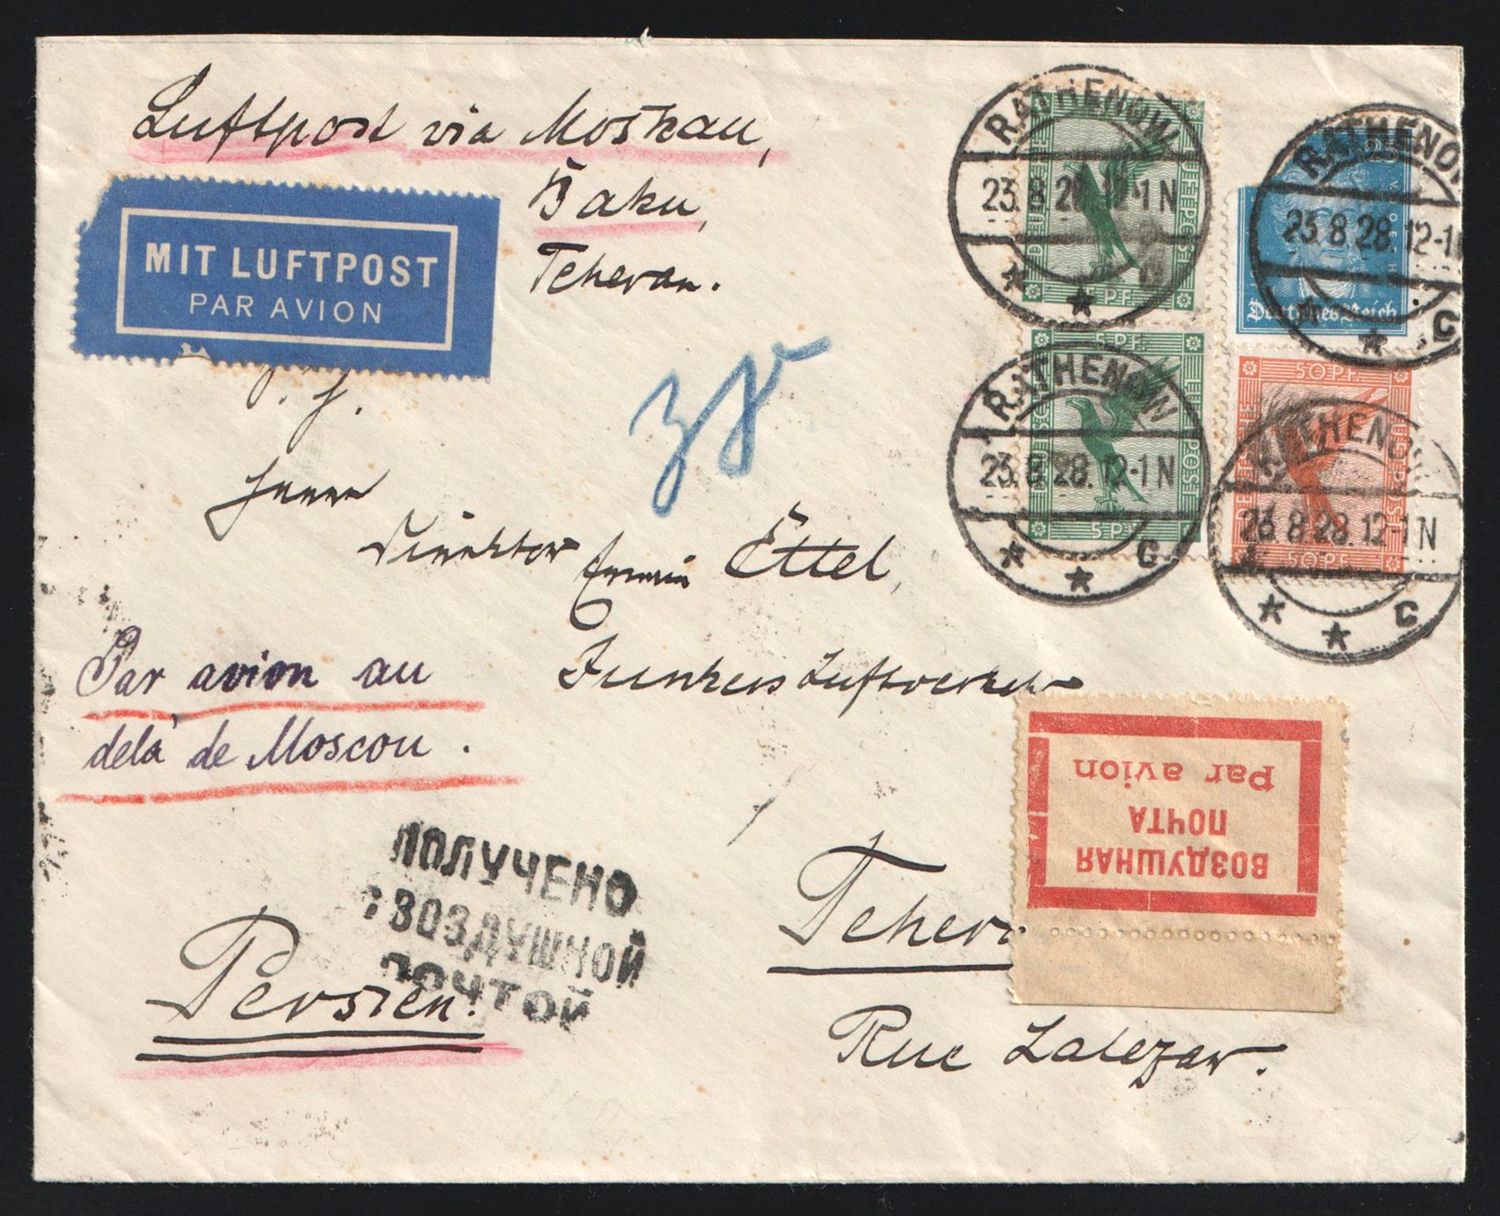 Luftpost via Moskau,
Baku,
Teheran.
MIT LUFTPOST
PAR AVION
RATHENOW
23.8.28.12-1N
* * C
5 PF.
DEUTSCHE LUFTPOST
RATHENOW
23.8.28.12-1N
* * C
25
Deutsches Reich
5 PF.
RATHENOW
23.8.28.12-1N
* * C
5 PF.
50 PF.
RATHENOW
23.8.28.12-1N
* * C
50 PF.
Herrn
Direktor Erwin Ettel,
Junkers Luftverkehr
Par avion au
delà de Moscou.
Par avion
ПОЧТА
ВОЗДУШНАЯ
ПОЛУЧЕНО
С ВОЗДУШНОЙ
ПОЧТОЙ
Teheran
Persien.
Rue Lalezar.